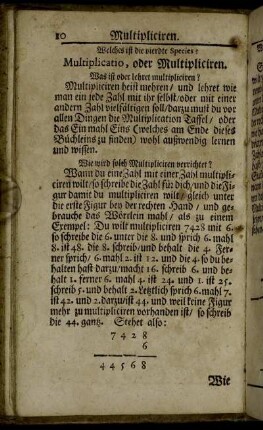 10 Multipliciren.
Welches ist die vierdte Species?
Multiplicatio, oder Multipliciren.
Was ist oder lehret multipliciren?
Multipliciren heist mehren/ und lehret wie
man ein jede Zahl mit ihr selbst/ oder mit einer
andern Zahl vielfältigen soll/ darzu must du vor
allen Dingen die Multiplication Taffel/ oder
das Ein mahl Eins (welches am Ende dieses
Büchleins zu finden) wohl außwendig lernen
und wissen.
Wie wird solch Multipliciren verrichtet?
Wann du eine Zahl mit einer Zahl multipli-
ciren wilt/ so schreibe die Zahl für dich/ und die Fi-
gur damit du multipliciren wilt/ gleich unter
die erste Figur bey der rechten Hand/ und ge-
brauche das Wörtlein mahl/ als zu einem
Exempel: Du wilt multipliciren 7428 mit 6.
so schreibe die 6. unter die 8. und sprich 6. mahl
8. ist 48. die 8. schreib/ und behalt die 4. Fer-
ner sprich/ 6. mahl 2. ist 12. und die 4. so du be-
halten hast darzu/ macht 16. schreib 6. und be-
halt 1. ferner 6. mahl 4. ist 24. und 1. ist 25.
schreib 5. und behalt 2. Letzlich sprich 6. mahl 7.
ist 42. und 2. darzu/ ist 44. und weil keine Figur
mehr zu multipliciren vorhanden ist/ so schreib
die 44. gantz. Stehet also:
7 4 2 8
6
4 4 5 6 8
Wie